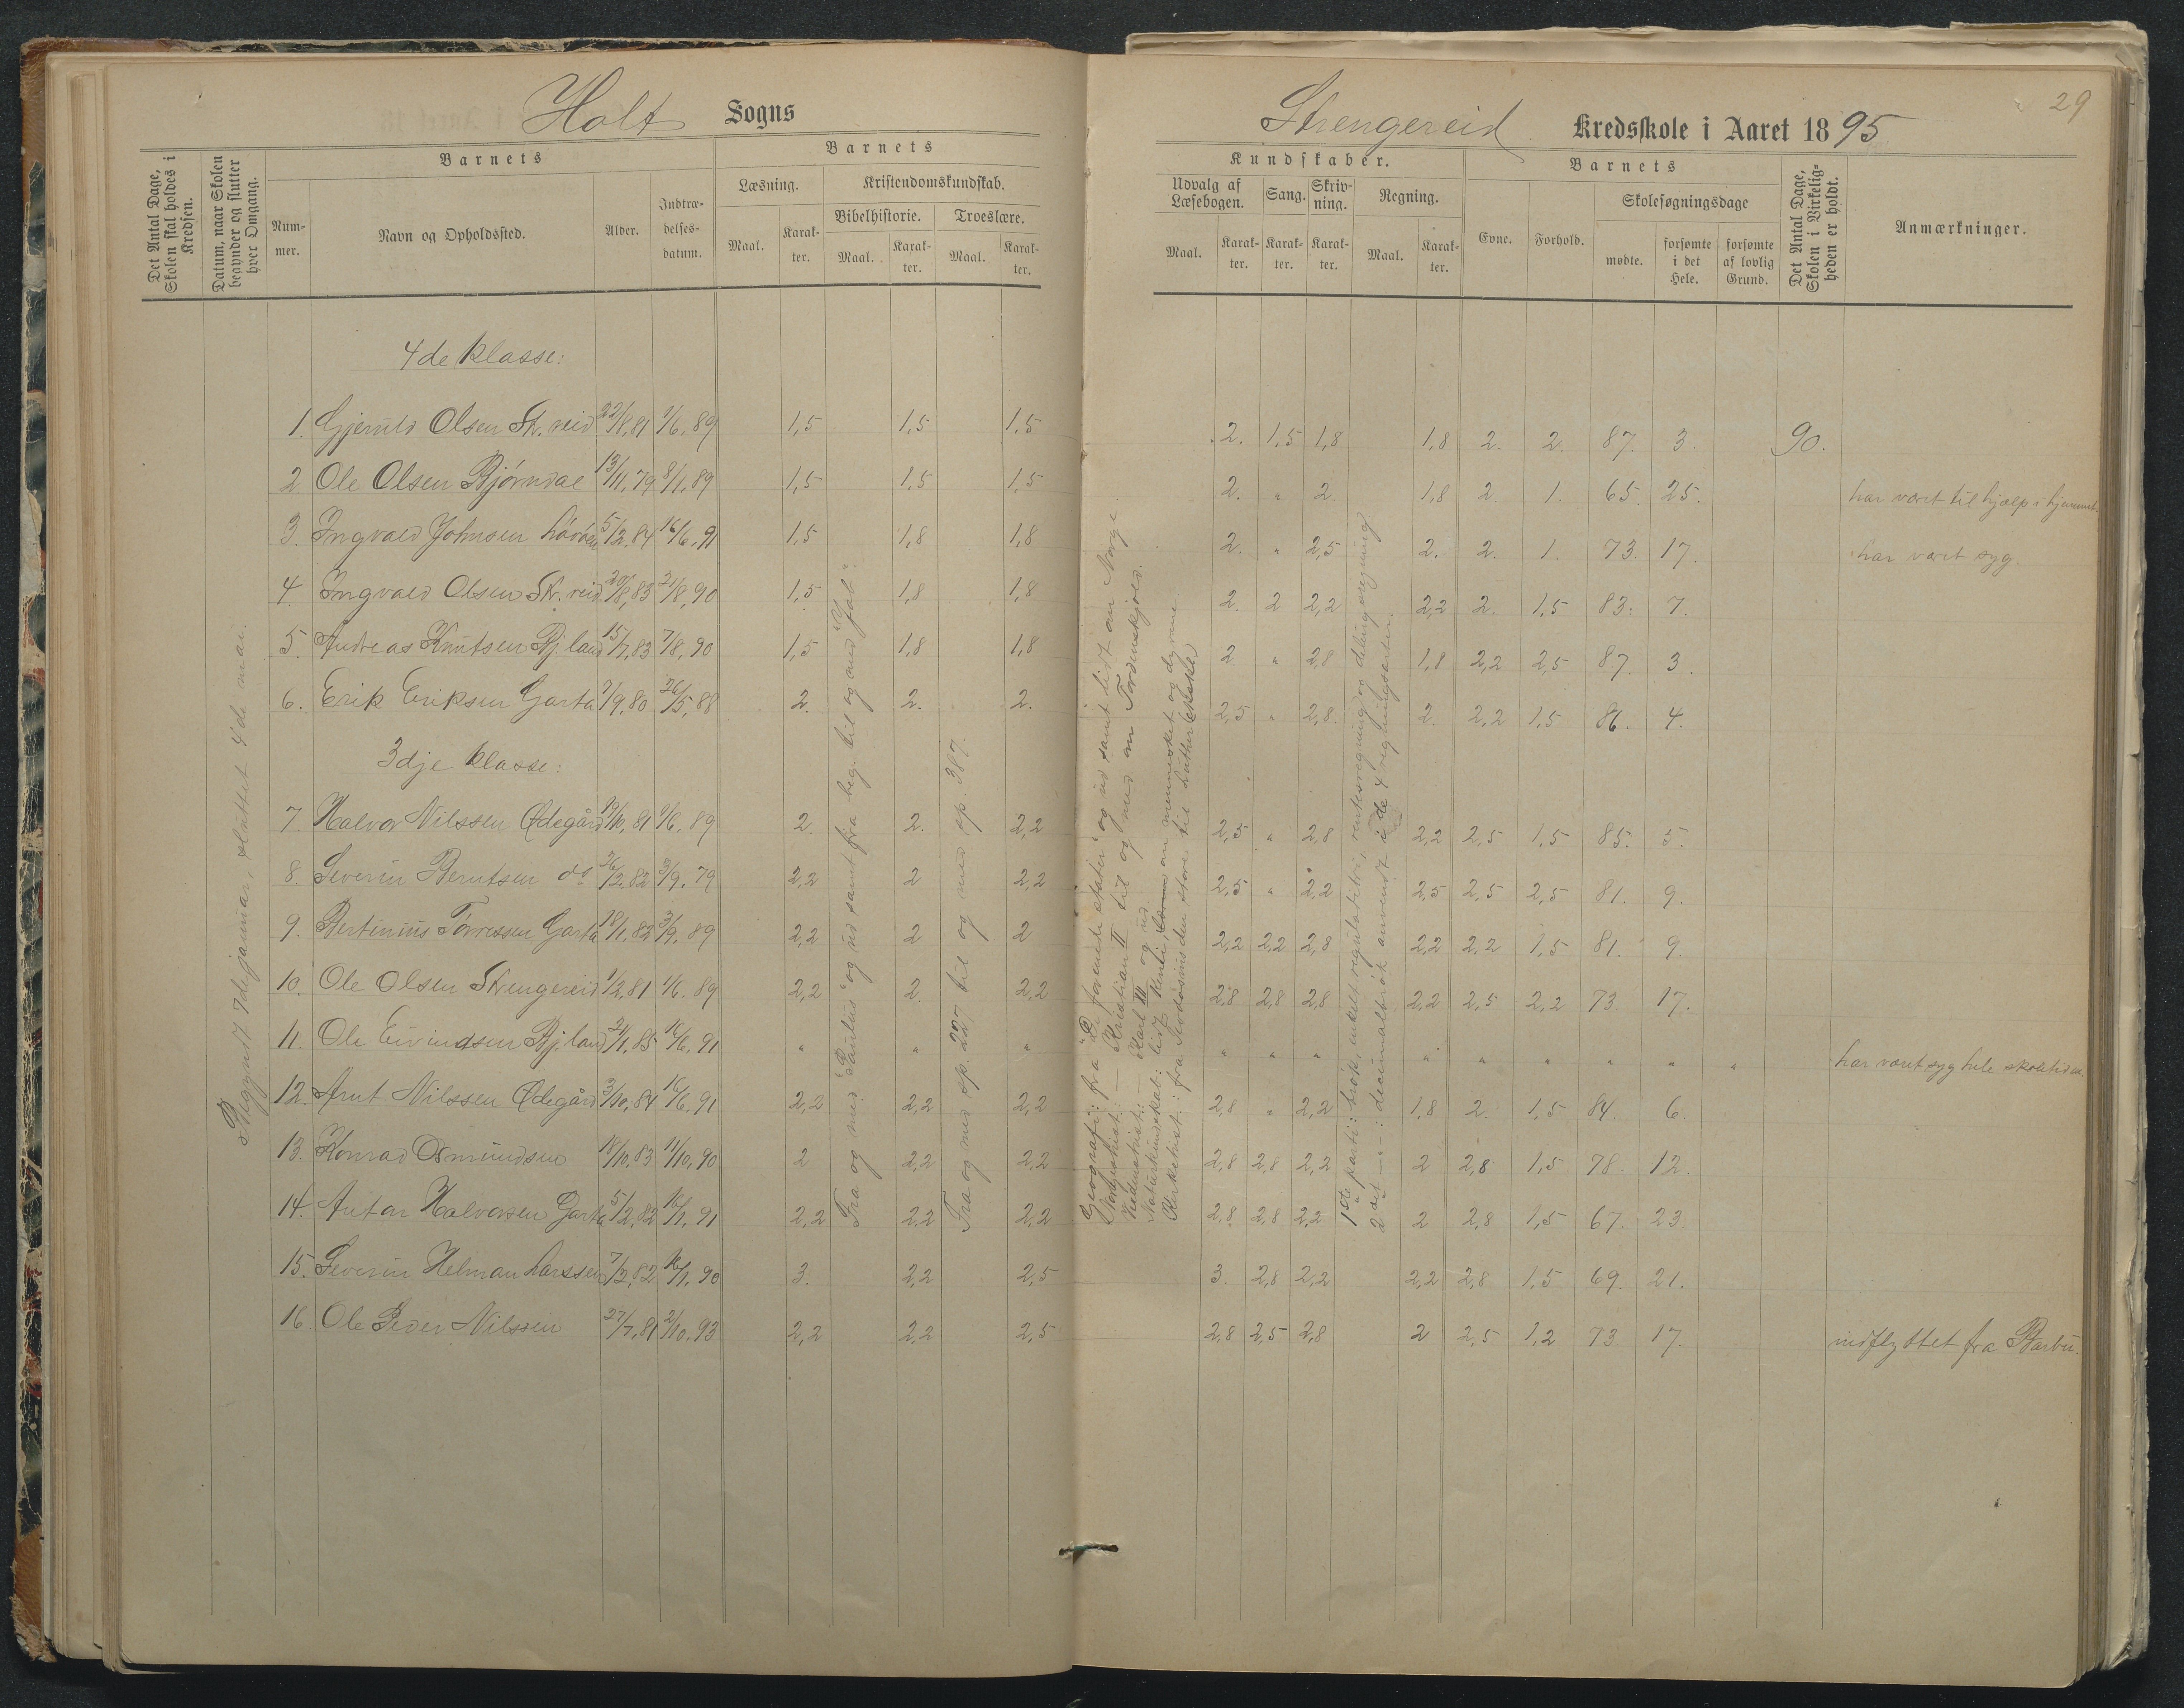 Holt Sogns
Det Antal Dage, Skolen skal holdes i Kredsen.
Datum, naar Skolen begynder og slutter hver Omgang.
Barnets
Num-mer.
Navn og Opholdssted.
Alder.
Indtræ-delses-datum.
Barnets
Læsning.
Maal.
Karak-ter.
Kristendomskundskab.
Bibelhistorie.
Maal.
Karak-ter.
Troeslære.
Maal.
Karak-ter.
Strengereid Kredsskole i Aaret 1895
29
Kundskaber.
Udvalg af Læsebogen.
Maal.
Karak-ter.
Sang.
Karak-ter.
Skriv-ning.
Karak-ter.
Regning.
Maal.
Karak-ter.
Barnets
Evne.
Forhold.
Skolesøgningsdage
mødte.
forsømte i det Hele.
forsømte af lovlig Grund.
Det Antal Dage, Skolen i Virkelig-heden er holdt.
Anmærkninger.
Begyndt 7de januar, sluttet 4de mai.
4de klasse:
1. Gjeruld Olsen Str.reid 22/8,81 1/6,89 1,5 1,5 1,5 2. 1,5 1,8 1,8 2. 2. 87. 3. 90.
2. Ole Olsen Bjørndal 13/11,79 8/1,89 1,5 1,5 1,5 2. " 2 1,8 2. 1. 65. 25. har været til hjælp i hjemmet.
3. Ingvald Johnsen 5/2,84 16/6,91 1,5 1,8 1,8 2. " 2,5 2. 2. 1. 73. 17. har været syg.
4. Ingvald Olsen Str.reid 20/8,83 21/8,90 1,5 1,8 1,8 2. 2 2,2 2,2 2. 1,5 83. 7.
5. Andreas Knutsen Bj.land 15/7,83 7/8,90 1,5 1,8 1,8 2 " 2,8 1,8 2,2 2,5 87. 3.
6. Erik Eriksen Garta 7/9,80 26/5,88 2. 2. 2. 2,5 " 2,8. 2. 2,2 1,5 86. 4.
3dje klasse:
7. Halvor Nilssen Ødegård 19/10,81 1/6,89 2. 2. 2,2 2,5 " 2,8 2,2 2,5 1,5 85. 5.
8. Severin Berntsen do 26/2,82 3/9,79 2,2 2 2,2 2,5 " 2,2 2,5 2,5 2,5 81. 9.
9. Bertinius Tørressen Garta 18/1,82 3/9,89 2,2 2 2 2,2 2,2 2,8 2,2 2,2 1,5 81. 9.
10. Ole Olsen Strengereid 1/2,81 1/6,89 2,2 2. 2,2 2,8 2,8 2,8 2,2 2,5 2,2 73 17.
11. Ole Eivindsen Bj.land 2/1,85 16/6,91 " " " " " " " " " " " " har været syg hele skoletiden.
12. Arnt Nilssen Ødegård 3/10,84 16/6,91 2,2 2,2 2,2 2,8 " 2,2 1,8 2. 1,5 84. 6.
13. Konrad Osmundsen 18/10,83 11/10,90 2 2,2 2,2 2,8 2,8 2,2 2 2,8 1,5 78. 12.
14. Anton Halvorsen Garta 5/2,82 16/1,91 2,2 2,2 2,2 2,8 2,8 2,2 2 2,8 1,5 67. 23.
15. Severin Helman Larssen 7/2,82 16/1,90 3. 2,2 2,5 3. 2,8 2,2 2,2 2,8 1,5 69. 21.
16. Ole Peder Nilssen 27/7,81 2/10,93 2,2 2,2 2,5 2,8 2,5 2,8 2 2,5 1,2 73 17. indflyttet fra Barbu.
Fra og med "Paulus" og ud samt fra beg. til og med "Jakob".
Fra og med sp. 227 til og med sp. 387.
Geografi: fra "De forenede stater" og ud samt lidt om Norge.
Norgeshist.: — Kristian II til og med om Tordenskjold.
Verdenshist.: — Karl III og ud.
Naturkundskab: lidt om mennesket og dyrene
Kirkehist.: fra Teodosius den store til Luther
1ste parti: brøk, enkelt regulatetri, rentesregning og delingsregning.
2det —"—: decimalbrøk anvendt i de 4 regningsarter.